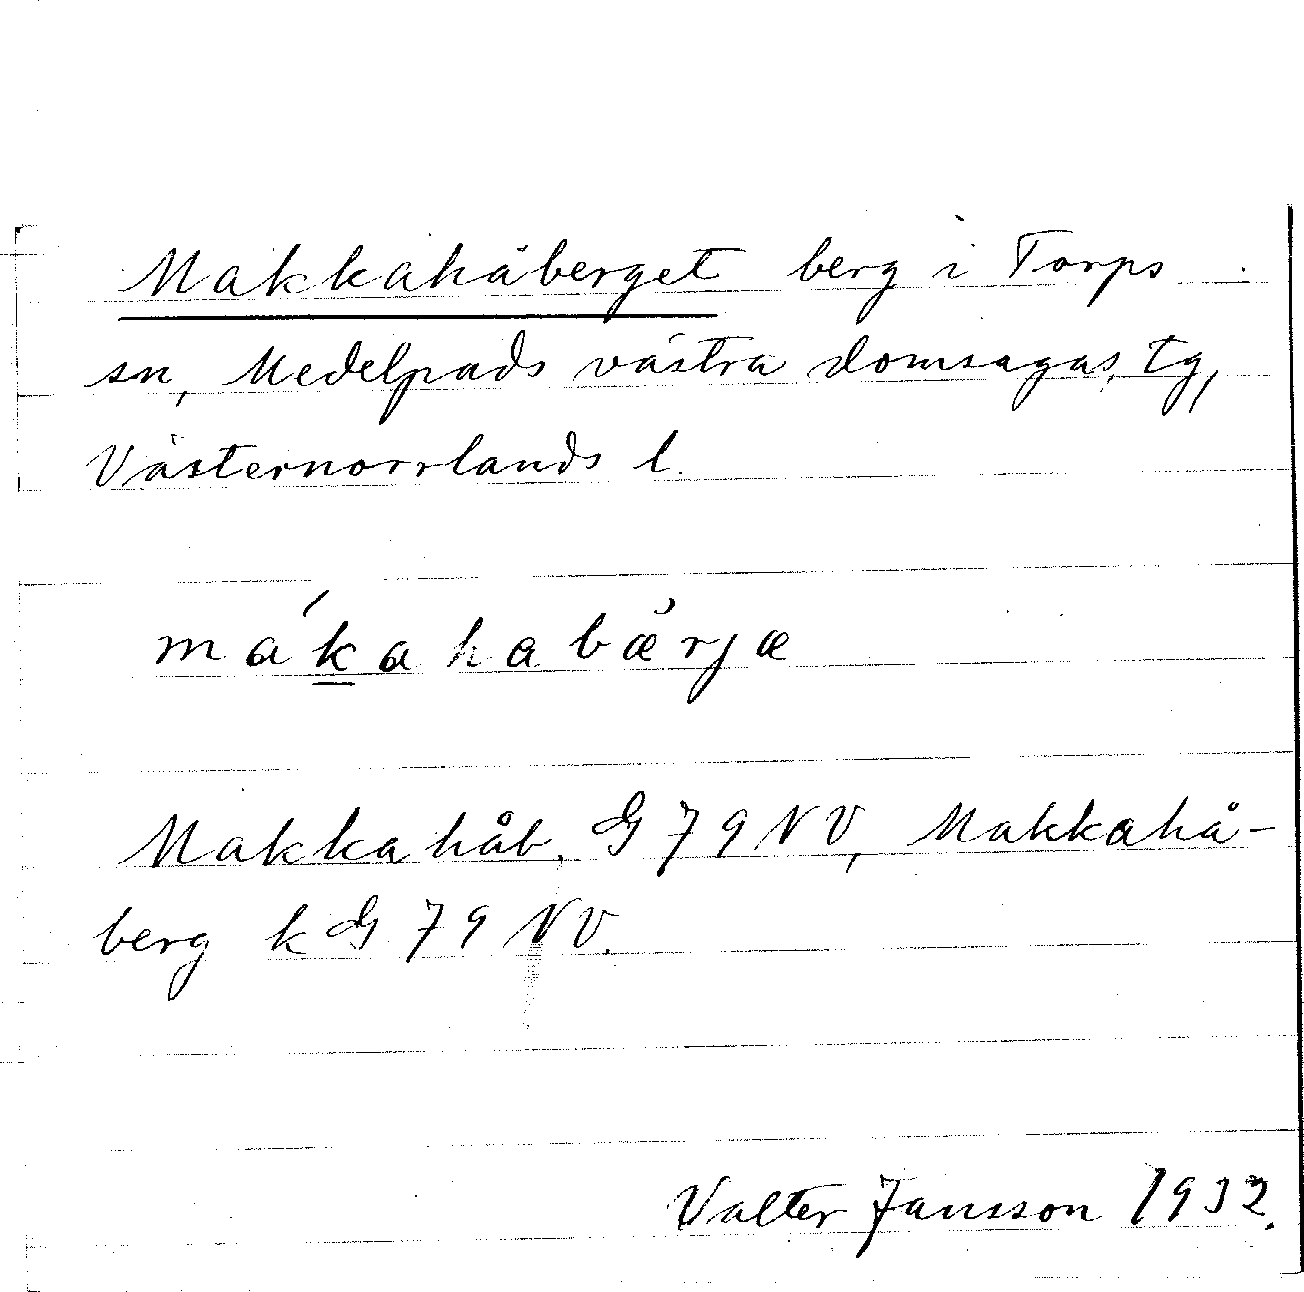 Makkahåberget berg i Torps
sn, Medelpads västra domsagas tg,
Västernorrlands l.
mák̲ahabæ̆rjæ
Makkahåb. G 79 NV, Makkahå-
berg k G 79 NV.
Valter Jansson 1932.